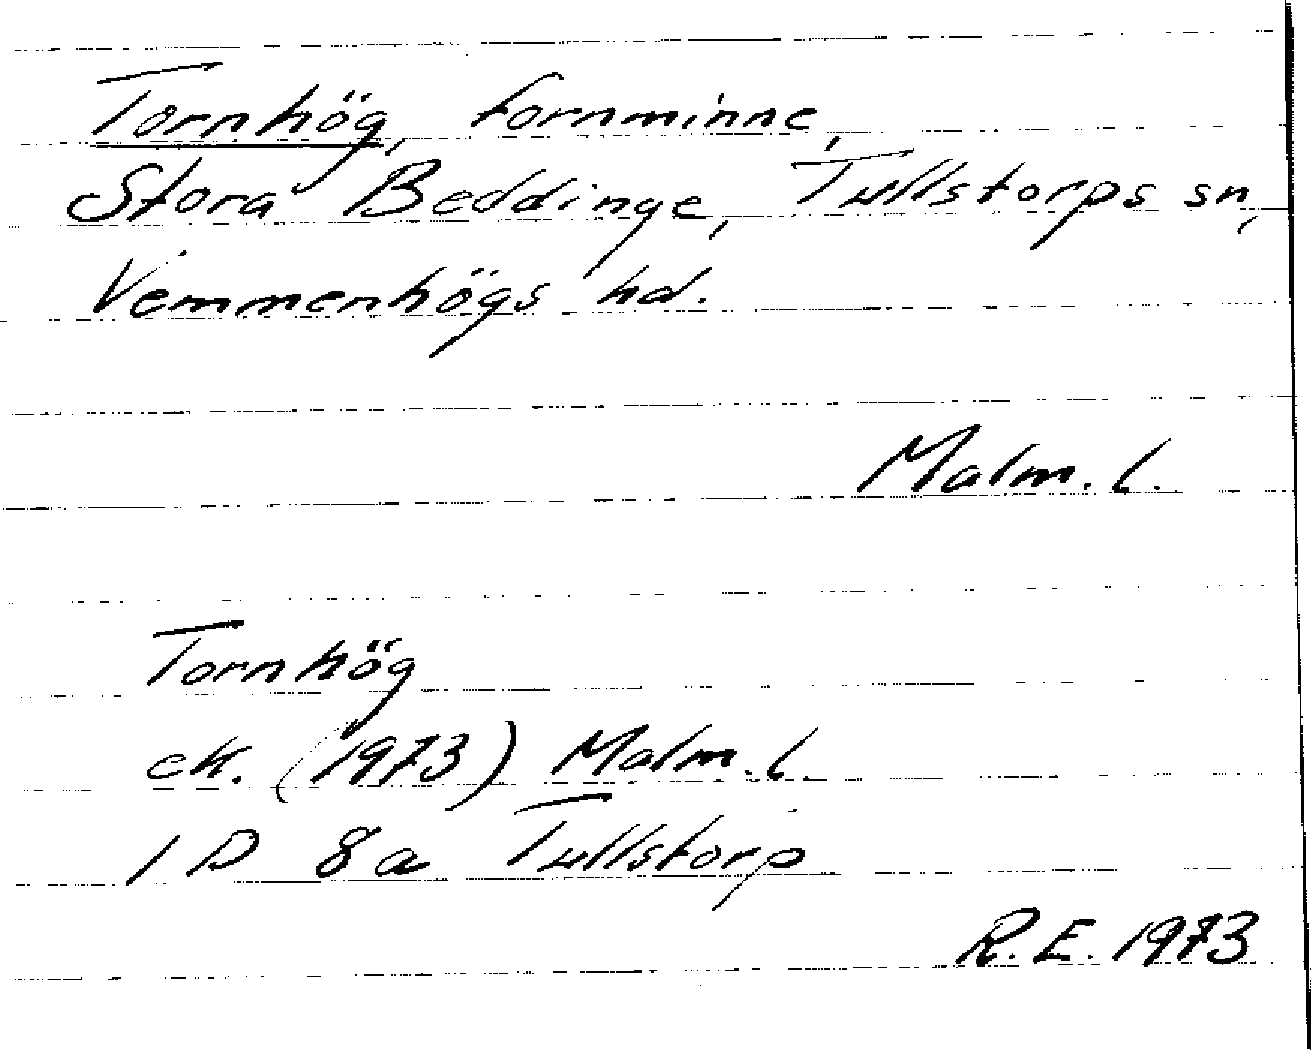 Tornhög, fornminne,
Stora Beddinge, Tullstorps sn,
Vemmenhögs hd.
Malm. l.
Tornhög
ek. (1973) Malm. l.
1 D 8a Tullstorp
R.E. 1973